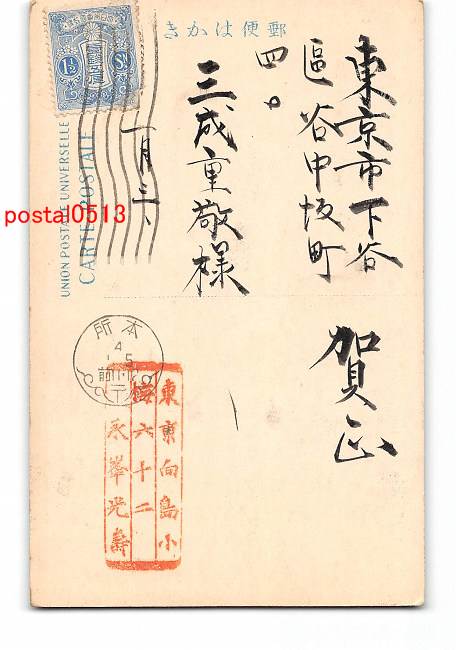 きかは便郵
東京市下谷
區谷中坂町
四〇
三成重敬様
一月三、
賀正
UNION POSTALE UNIVERSELLE
CARTE POSTALE
1½ Sn
本所
4
5
前
東京向島小
梅六十二
永峯光壽
postal0513